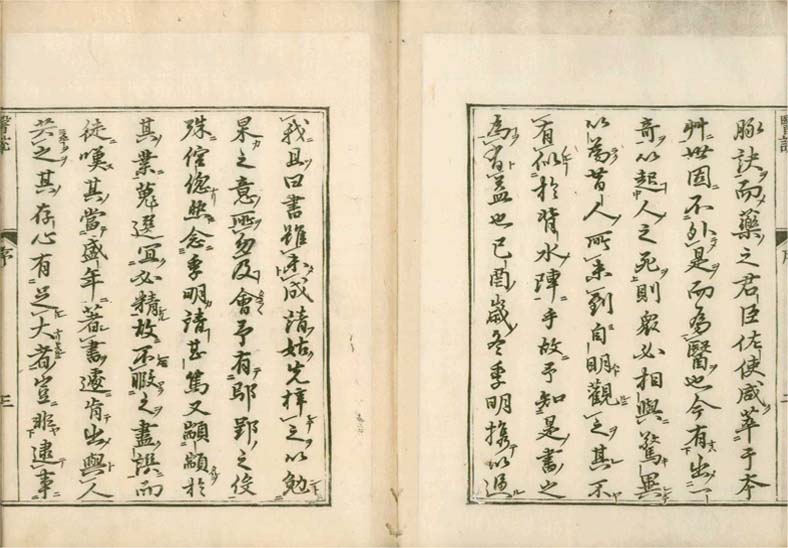 脉訣而藥之君臣佐使咸萃于本
艸世固不外是而爲醫也今有出一
奇以起人之死則衆必相與驚異
以爲昔人所未到自明觀之其不
有似於背水陣乎故予知是書之
爲有益也已酉歲冬季明携以過
我且曰書雖未成請姑先梓之以勉
杲之意及會予有之役
殊倥傯然念季明請甚篤又顓顓於
其業蒐選宜必精故不暇之盡讀而
徒嘆其當盛年著書遽肯出與人
共之其存心有足大者豈非逮事
醫説
序
三